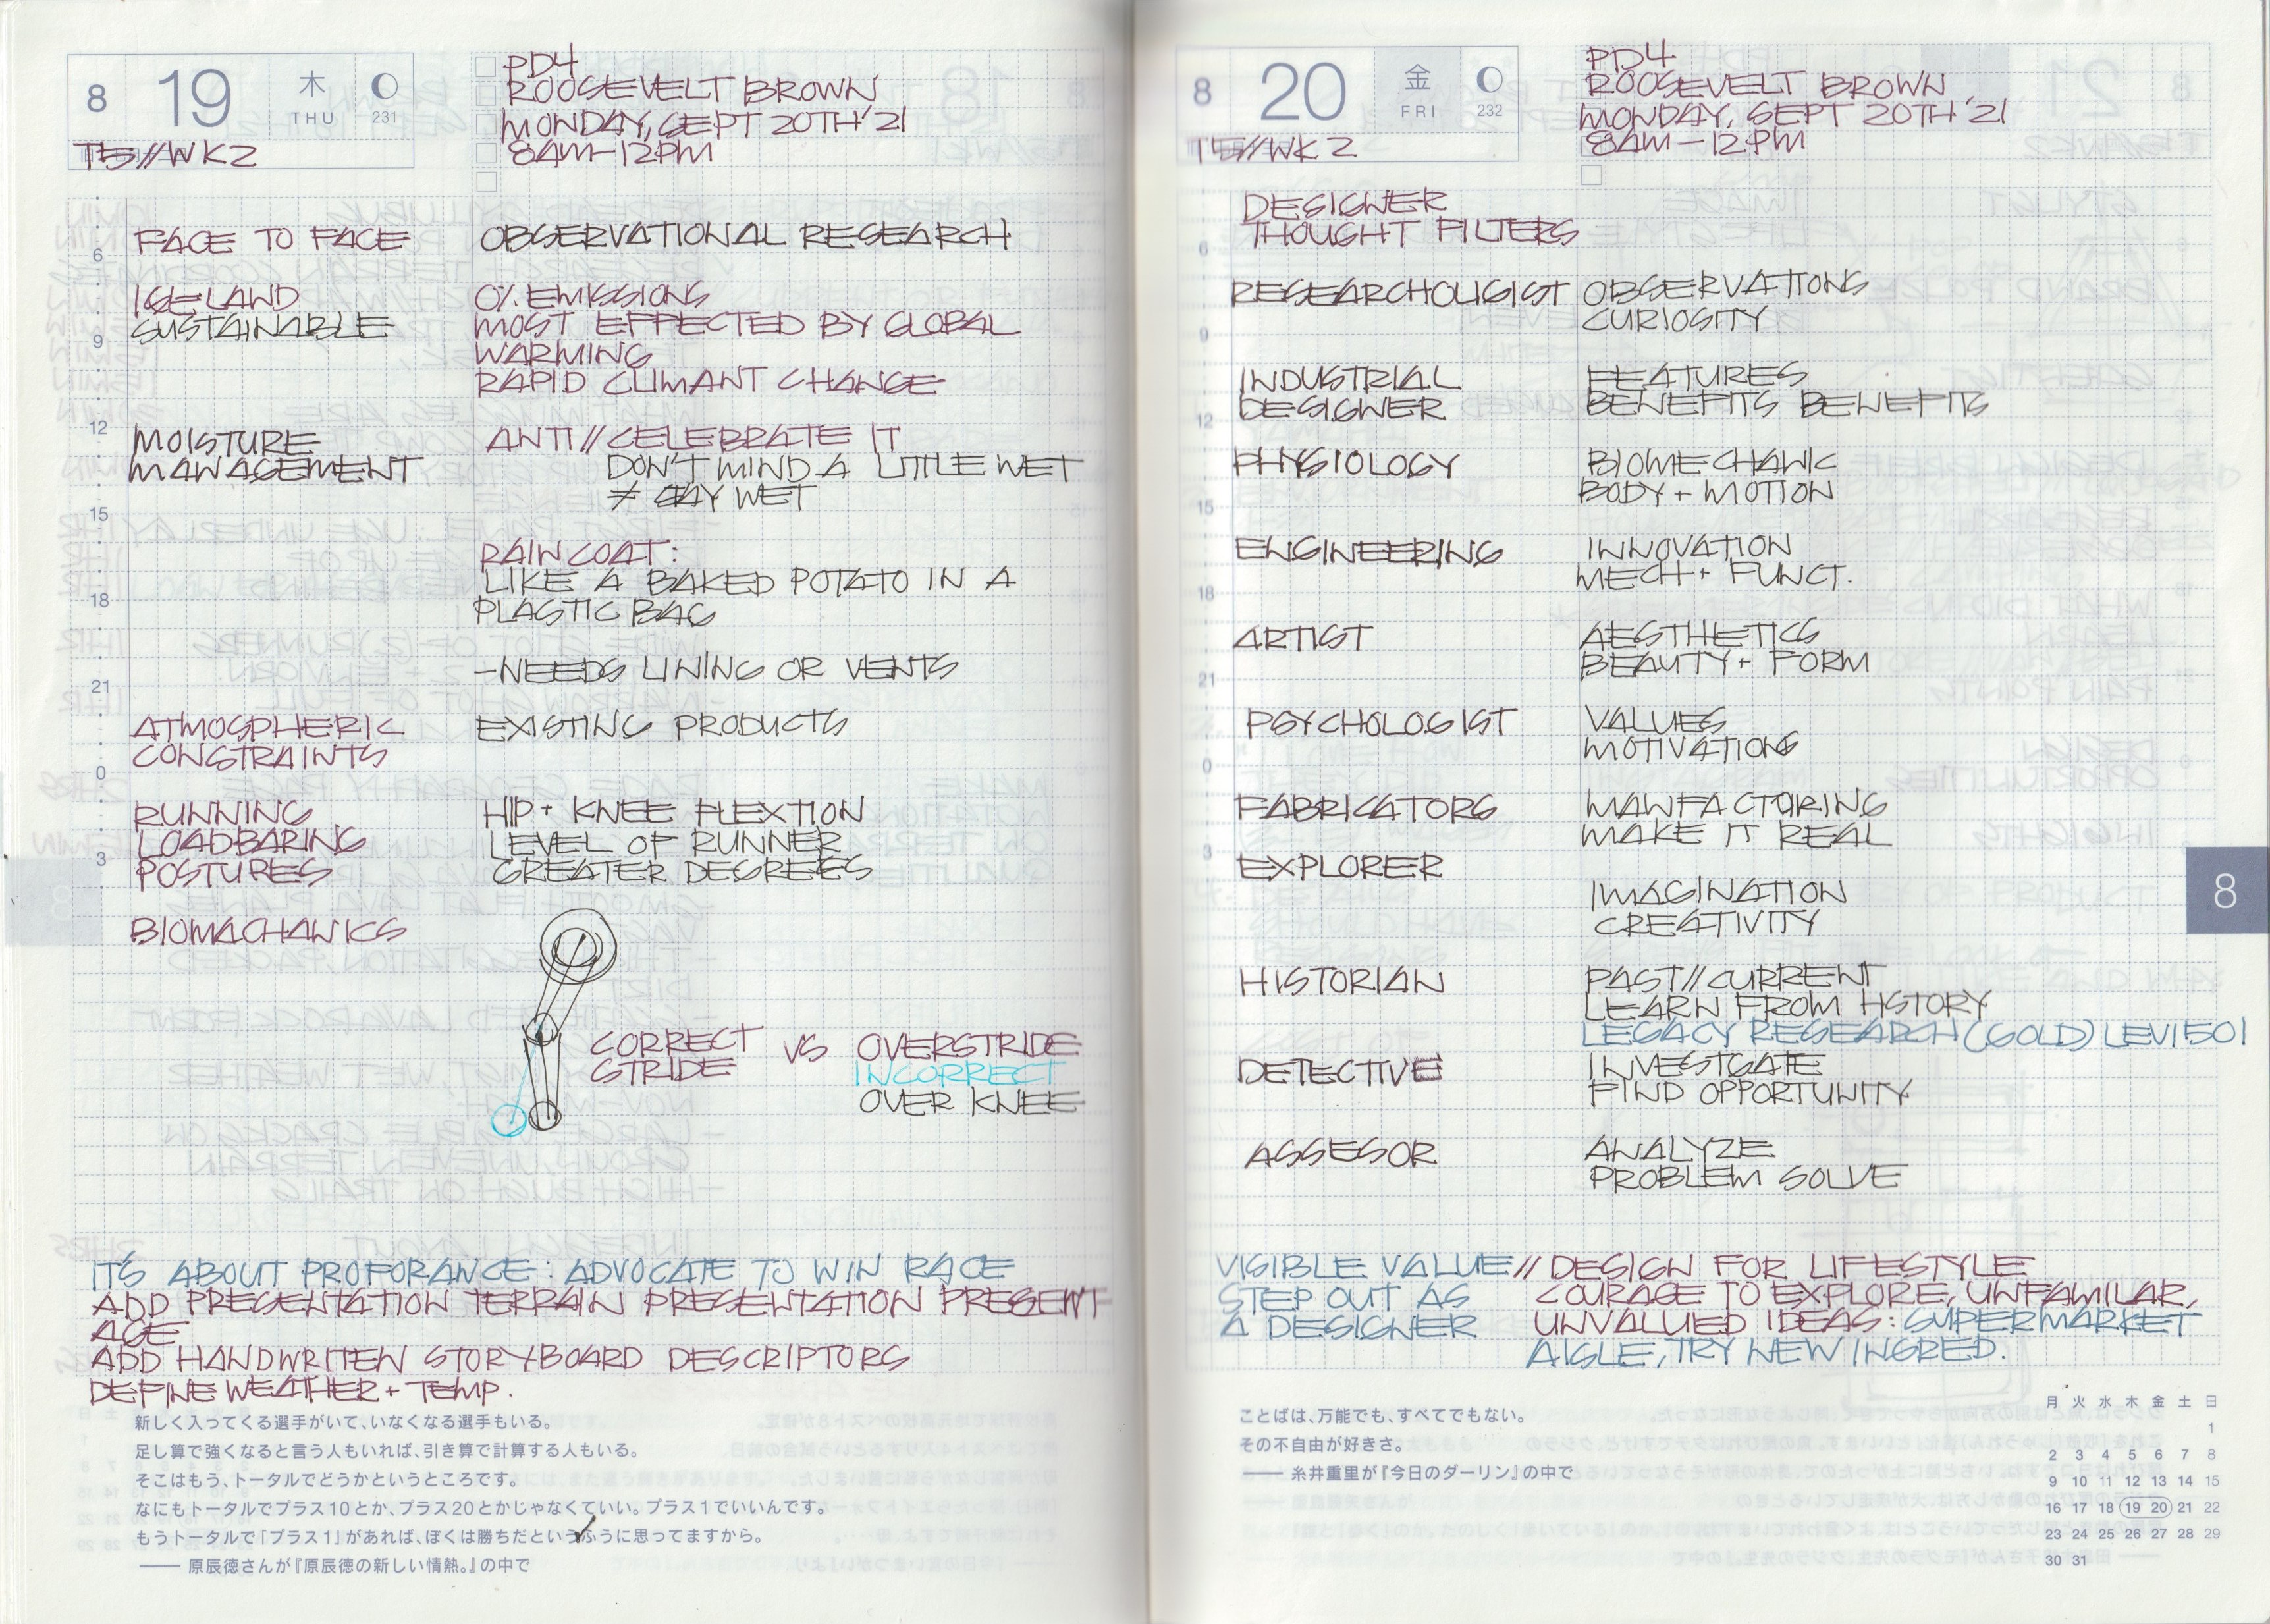 8 19 木 THU 231
T5//WK2
PD4
ROOSEVELT BROWN
MONDAY, SEPT 20TH '21
8AM-12PM
FACE TO FACE OBSERVATIONAL RESEARCH
ICELAND 0% EMISSIONS
SUSTAINABLE MOST EFFECTED BY GLOBAL
WARMING
RAPID CLIMANT CHANGE
MOISTURE ANTI//CELEBRATE IT
MANAGEMENT DON'T MIND A LITTLE WET
≠ STAY WET
RAIN COAT:
LIKE A BAKED POTATO IN A
PLASTIC BAG
-NEEDS LINING OR VENTS
ATMOSPHERIC EXISTING PRODUCTS
CONSTRAINTS
RUNNING HIP + KNEE FLEXTION
LOADBARING LEVEL OF RUNNER
POSTURES GREATER DEGREES
BIOMACHANICS
CORRECT VS OVERSTRIDE
STRIDE INCORRECT
OVER KNEE
6
9
12
15
18
21
0
3
ITS ABOUT PROFORANCE: ADVOCATE TO WIN RACE
ADD PRESENTATION TERRAIN PRESENTATION PRESENT
AGE
ADD HANDWRITEN STORYBOARD DESCRIPTORS
DEFINE WEATHER + TEMP.
新しく入ってくる選手がいて、いなくなる選手もいる。
足し算で強くなると言う人もいれば、引き算で計算する人もいる。
そこはもう、トータルでどうかというところです。
なにもトータルでプラス10とか、プラス20とかじゃなくていい。プラス1でいいんです。
もうトータルで「プラス1」があれば、ぼくは勝ちだというふうに思ってますから。
—— 原辰徳さんが『原辰徳の新しい情熱。』の中で
8 20 金 FRI 232
T5//WK2
PD4
ROOSEVELT BROWN
MONDAY, SEPT 20TH '21
8AM-12PM
DESIGNER
THOUGHT FILTERS
RESEARCHOLIGIST OBSERVATIONS
CURIOSITY
INDUSTRIAL FEATURES
DESIGNER BENEFITS BENEFITS
PHYSIOLOGY BIOMECHANIC
BODY + MOTION
ENGINEERING INNOVATION
MECH + FUNCT.
ARTIST AESTHETICS
BEAUTY + FORM
PSYCHOLOGIST VALUES
MOTIVATIONS
FABRICATORS MANFACTURING
MAKE IT REAL
EXPLORER
IMAGINATION
CREATIVITY
HISTORIAN PAST//CURRENT
LEARN FROM HSTORY
LEGACY RESEARCH (GOLD) LEVI 501
DETECTIVE INVESTGATE
FIND OPPORTUNITY
ASSESOR ANALYZE
PROBLEM SOLVE
6
9
12
15
18
21
0
3
8
VISIBLE VALUE // DESIGN FOR LIFESTYLE
STEP OUT AS COURAGE TO EXPLORE, UNFAMILAR,
A DESIGNER UNVALUED IDEAS: SUPERMARKET
AISLE, TRY NEW INGRED.
ことばは、万能でも、すべてでもない。
その不自由が好きさ。
—— 糸井重里が『今日のダーリン』の中で
月 火 水 木 金 土 日
1
2 3 4 5 6 7 8
9 10 11 12 13 14 15
16 17 18 19 20 21 22
23 24 25 26 27 28 29
30 31